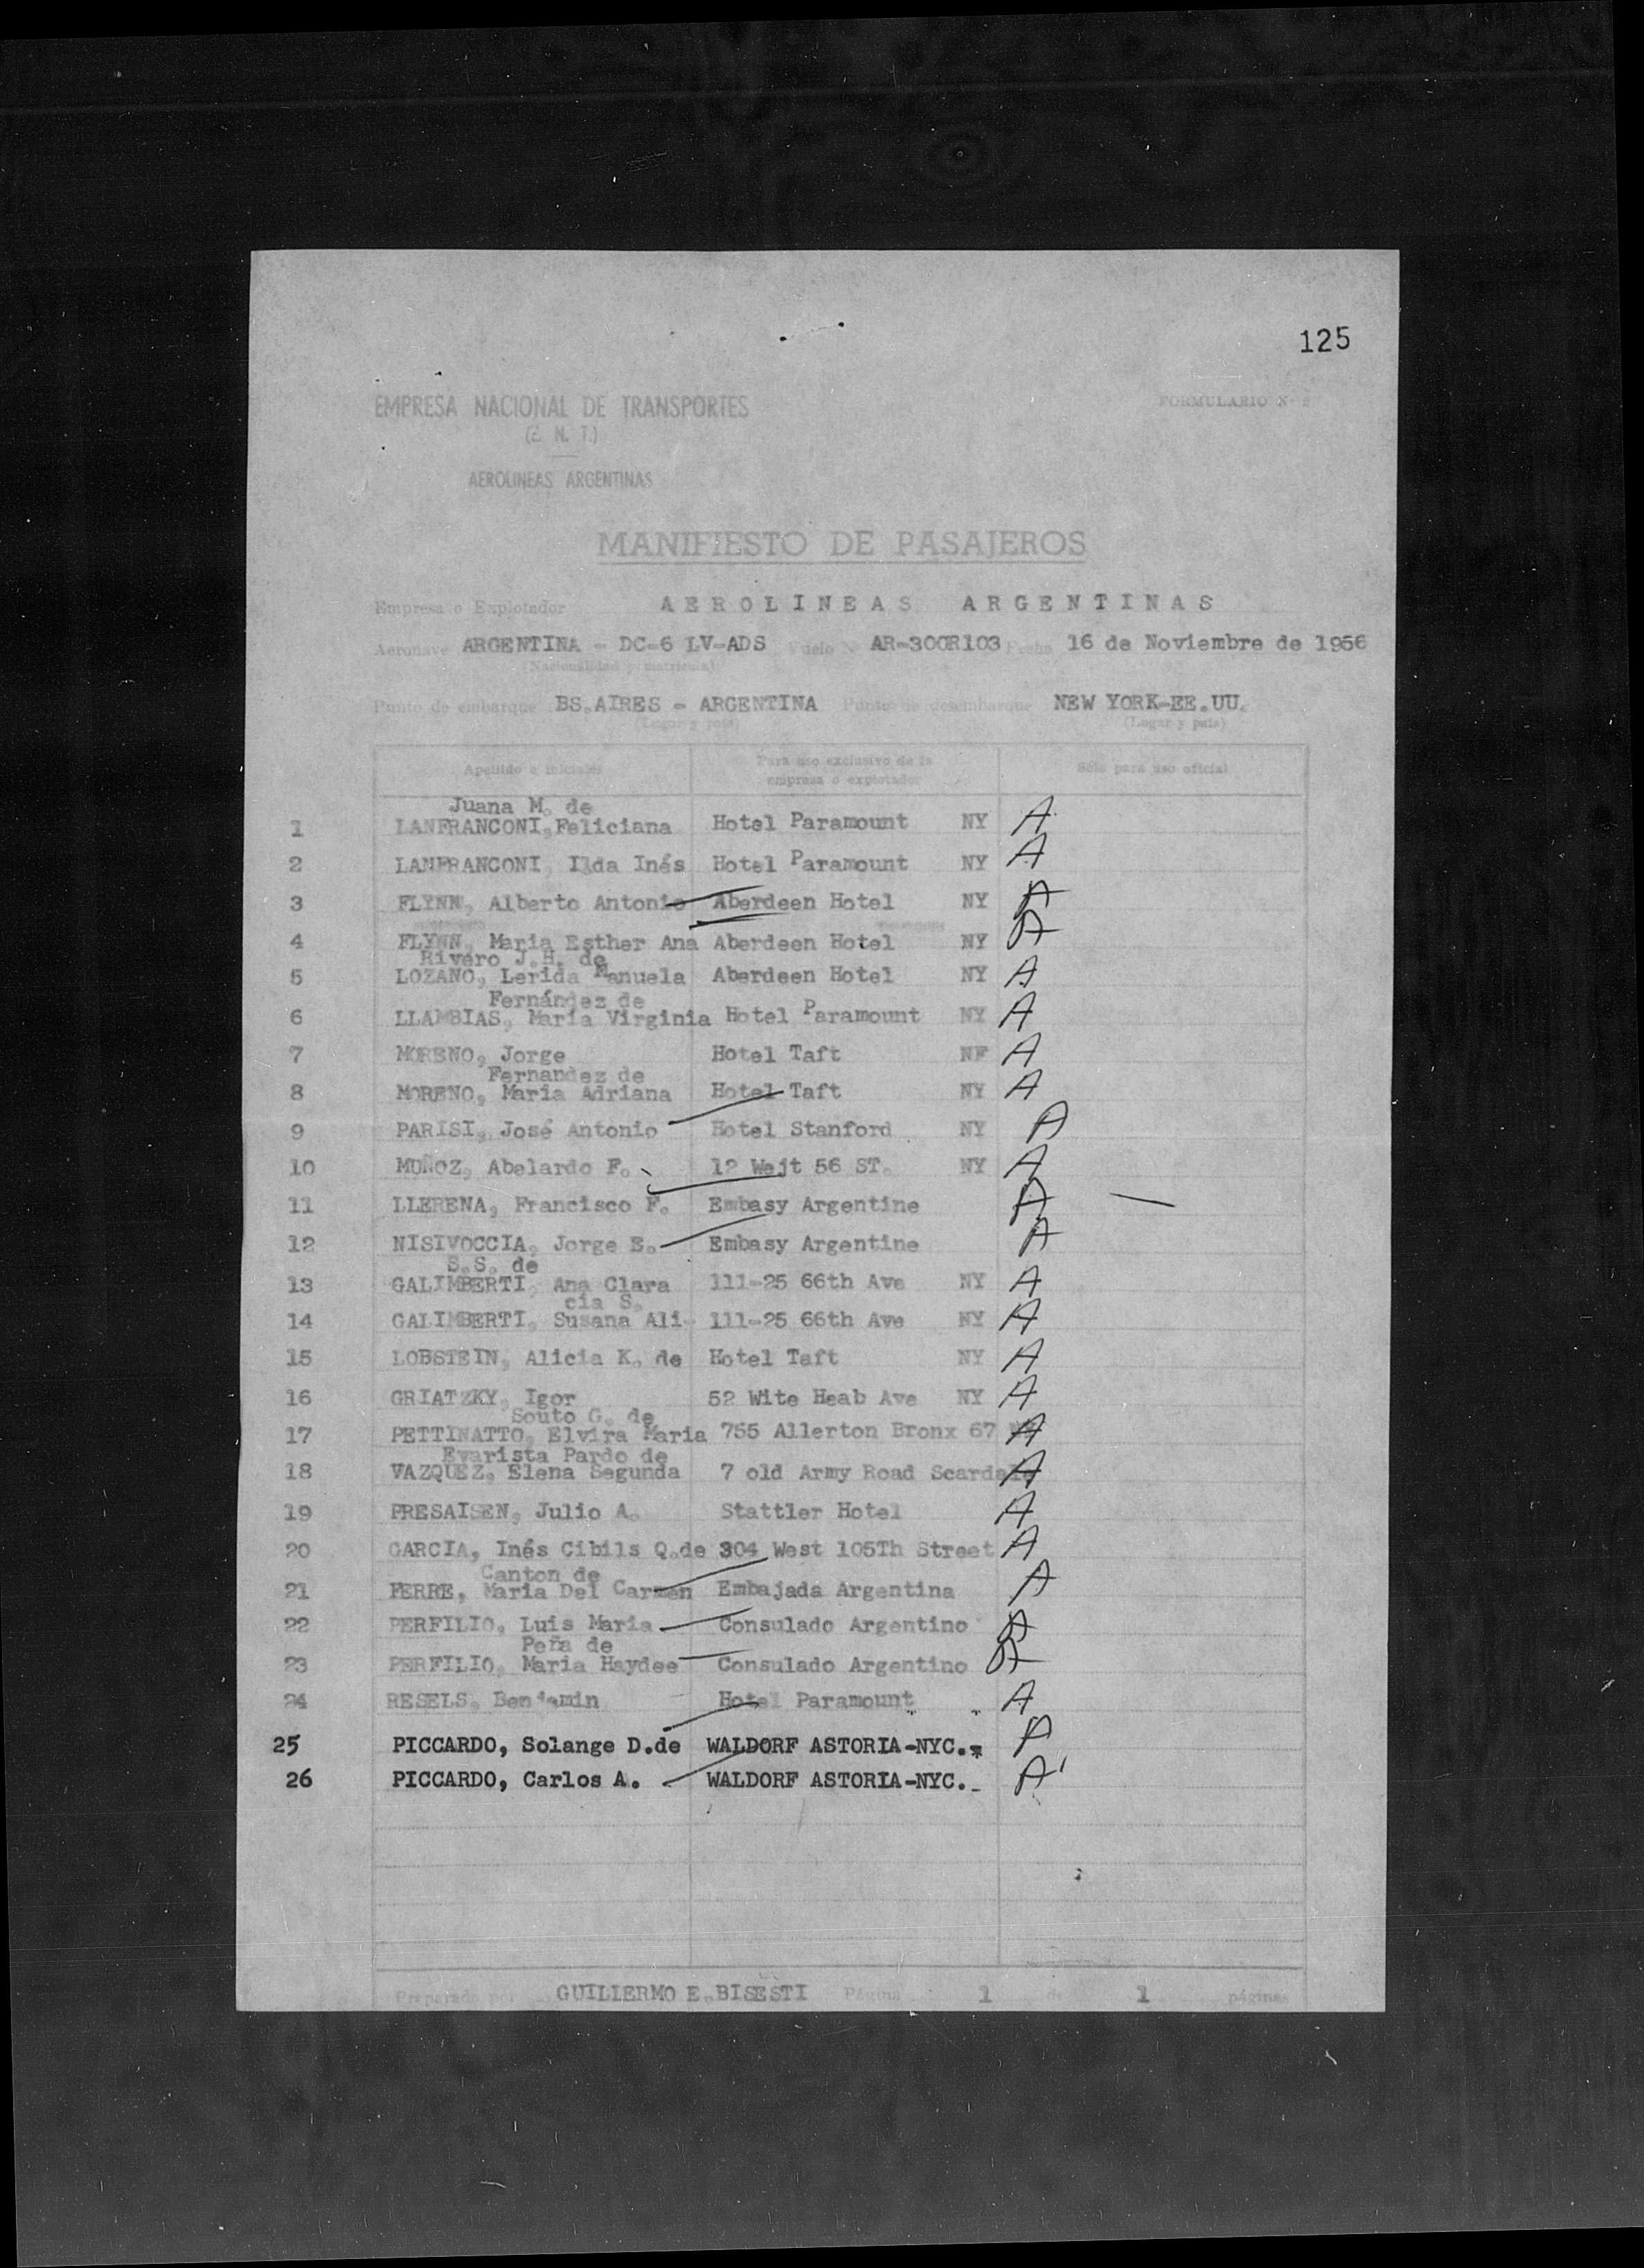 125
EMPRESA NACIONAL DE TRANSPORTES
FORMULARIO N.
(E. N. T.)
AEROLINEAS ARGENTINAS
MANIFIESTO DE PASAJEROS
Empresa o Explotador AEROLINEAS ARGENTINAS
Aeronave ARGENTINA - DC-6 LV-ADS Vuelo N AR-300R103 Fecha 16 de Noviembre de 1956
(Nacionalidad y matrícula)
Punto de embarque BS.AIRES - ARGENTINA Punto de desembarque NEW YORK-EE.UU.
(Lugar y país) (Lugar y país)
Apellido e iniciales Para uso exclusivo de la empresa o explotador Sólo para uso oficial
Juana M. de
1 LANFRANCONI, Feliciana Hotel Paramount NY A
2 LANFRANCONI, Ilda Inés Hotel Paramount NY A
3 FLYNN, Alberto Antonio Aberdeen Hotel NY A
4 FLYNN, Maria Esther Ana Aberdeen Hotel NY A
Rivero J.H. de
5 LOZANO, Lerida Manuela Aberdeen Hotel NY A
Fernández de
6 LLAMBIAS, María Virginia Hotel Paramount NY A
7 MORENO, Jorge Hotel Taft NF A
Fernandez de
8 MORENO, Maria Adriana Hotel Taft NY A
9 PARISI, José Antonio Hotel Stanford NY A
10 MUÑOZ, Abelardo F. 12 Wejt 56 ST. NY A
11 LLERENA, Francisco F. Embasy Argentine A
12 NISIVOCCIA, Jorge E. Embasy Argentine A
S.S. de
13 GALIMBERTI, Ana Clara 111-25 66th Ave NY A
cia S.
14 GALIMBERTI, Susana Ali- 111-25 66th Ave NY A
15 LOBSTEIN, Alicia K. de Hotel Taft NY A
16 GRIATZKY, Igor 52 Wite Heab Ave NY A
Souto G. de
17 PETTINATTO, Elvira Maria 755 Allerton Bronx 67 A
Evarista Pardo de
18 VAZQUEZ, Elena Segunda 7 old Army Road Scardale A
19 PRESAISEN, Julio A. Stattler Hotel A
20 GARCIA, Inés Cibils Q.de 304 West 105Th Street A
Canton de
21 FERRE, Maria Del Carmen Embajada Argentina A
22 PERFILIO, Luis Maria Consulado Argentino A
Peña de
23 PERFILIO, Maria Haydee Consulado Argentino A
24 RESELS, Benjamin Hotel Paramount A
25 PICCARDO, Solange D.de WALDORF ASTORIA-NYC. A
26 PICCARDO, Carlos A. WALDORF ASTORIA-NYC._ A
Preparado por GUILLERMO E.BISESTI Página 1 de 1 páginas